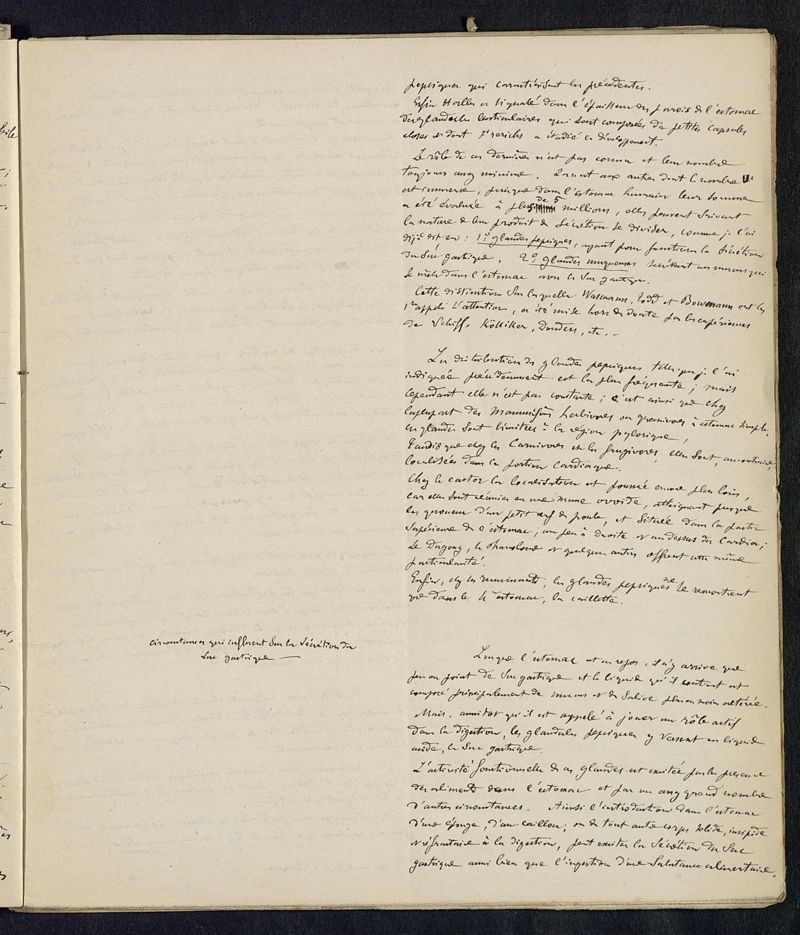 pepsiques qui caractérisent les précédentes.
Enfin Haller a signalé dans l'épaisseur des parois de l'estomac
des glandules lenticulaires qui sont composées de petites capsules
closes et dont Frerichs a étudié le développement.
Le rôle de ces dernières n'est pas connu et leur nombre
toujours assez minime. Quant aux autres dont le nombre
est immense, puisque dans l'estomac humain leur somme
a été évaluée à plus de 5 millions, elles peuvent suivant
la nature de leur produit de sécrétion se diviser, comme je l'ai
déjà dit en : 1° glandes pepsiques, ayant pour fonction la sécrétion
du suc gastrique. 2° glandes muqueuses sécrétant un mucus qui
se mêle dans l'estomac avec le suc gastrique.
Cette distinction sur laquelle Wasmann, Todd et Bowmann ont les
1ers appelé l'attention, a été mise hors de doute par les expériences
de Schiff, Kölliker, Donders, etc..
La distribution des glandes pepsiques telle que je l'ai
indiquée précédemment est la plus fréquente ; mais
cependant elle n'est pas constante ; c'est ainsi que chez
la plupart des Mammifères herbivores ou granivores à estomac simple,
les glandes sont limitées à la région pylorique,
tandis que chez les Carnivores et les frugivores, elles sont, au contraire,
localisées dans la portion cardiaque.
Chez le castor la localisation est poussée encore plus loin,
car elles sont réunies en une masse ovoïde, atteignant presque
la grosseur d'un petit œuf de poule, et située dans la partie
supérieure de l'estomac, un peu à droite et au dessous du Cardia ;
Le Dugong, le Phascolome et quelques autres offrent cette même
particularité.
Enfin, chez les ruminants, les glandes pepsiques ne se rencontrent
que dans le 4e estomac, la caillette.
Circonstances qui influent sur la sécrétion du
suc gastrique —
Lorsque l'estomac est en repos, il n'y arrive que
peu ou point de suc gastrique et le liquide qu'il contient est
composé principalement de mucus et de salive plus ou moins altérée.
Mais, aussitôt qu'il est appelé à jouer un rôle actif
dans la digestion, les glandules pepsiques y versent un liquide
acide, le suc gastrique.
L'activité fonctionnelle de ces glandes est excitée par la présence
des aliments dans l'estomac et par un assez grand nombre
d'autres circonstances. Ainsi l'introduction dans l'estomac
d'une éponge, d'un caillou, ou de tout autre corps solide, insipide
et réfractaire à la digestion, peut exciter la sécrétion du suc
gastrique aussi bien que l'ingestion d'une substance alimentaire.